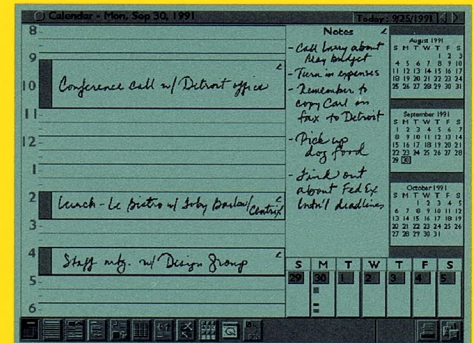 Calendar - Mon, Sep 30, 1991
Today: 9/25/1991
8
9
10
11
12
1
2
3
4
5
6
Conference call w/ Detroit office
Lunch - Le Bistro w/ Toby Barlow/
Centrix
Staff mtg. w/ Design Group
Notes
- Call Larry about
May budget
- Turn in expenses
- Remember to
copy Carl on
fax to Detroit
- Pick up
dog food
- Find out
about Fed Ex
Intn'l deadlines
August 1991
S M T W T F S
1 2 3
4 5 6 7 8 9 10
11 12 13 14 15 16 17
18 19 20 21 22 23 24
25 26 27 28 29 30 31
September 1991
S M T W T F S
1 2 3 4 5 6 7
8 9 10 11 12 13 14
15 16 17 18 19 20 21
22 23 24 25 26 27 28
29 30
October 1991
S M T W T F S
1 2 3 4 5
6 7 8 9 10 11 12
13 14 15 16 17 18 19
20 21 22 23 24 25 26
27 28 29 30 31
S M T W T F S
29 30 1 2 3 4 5